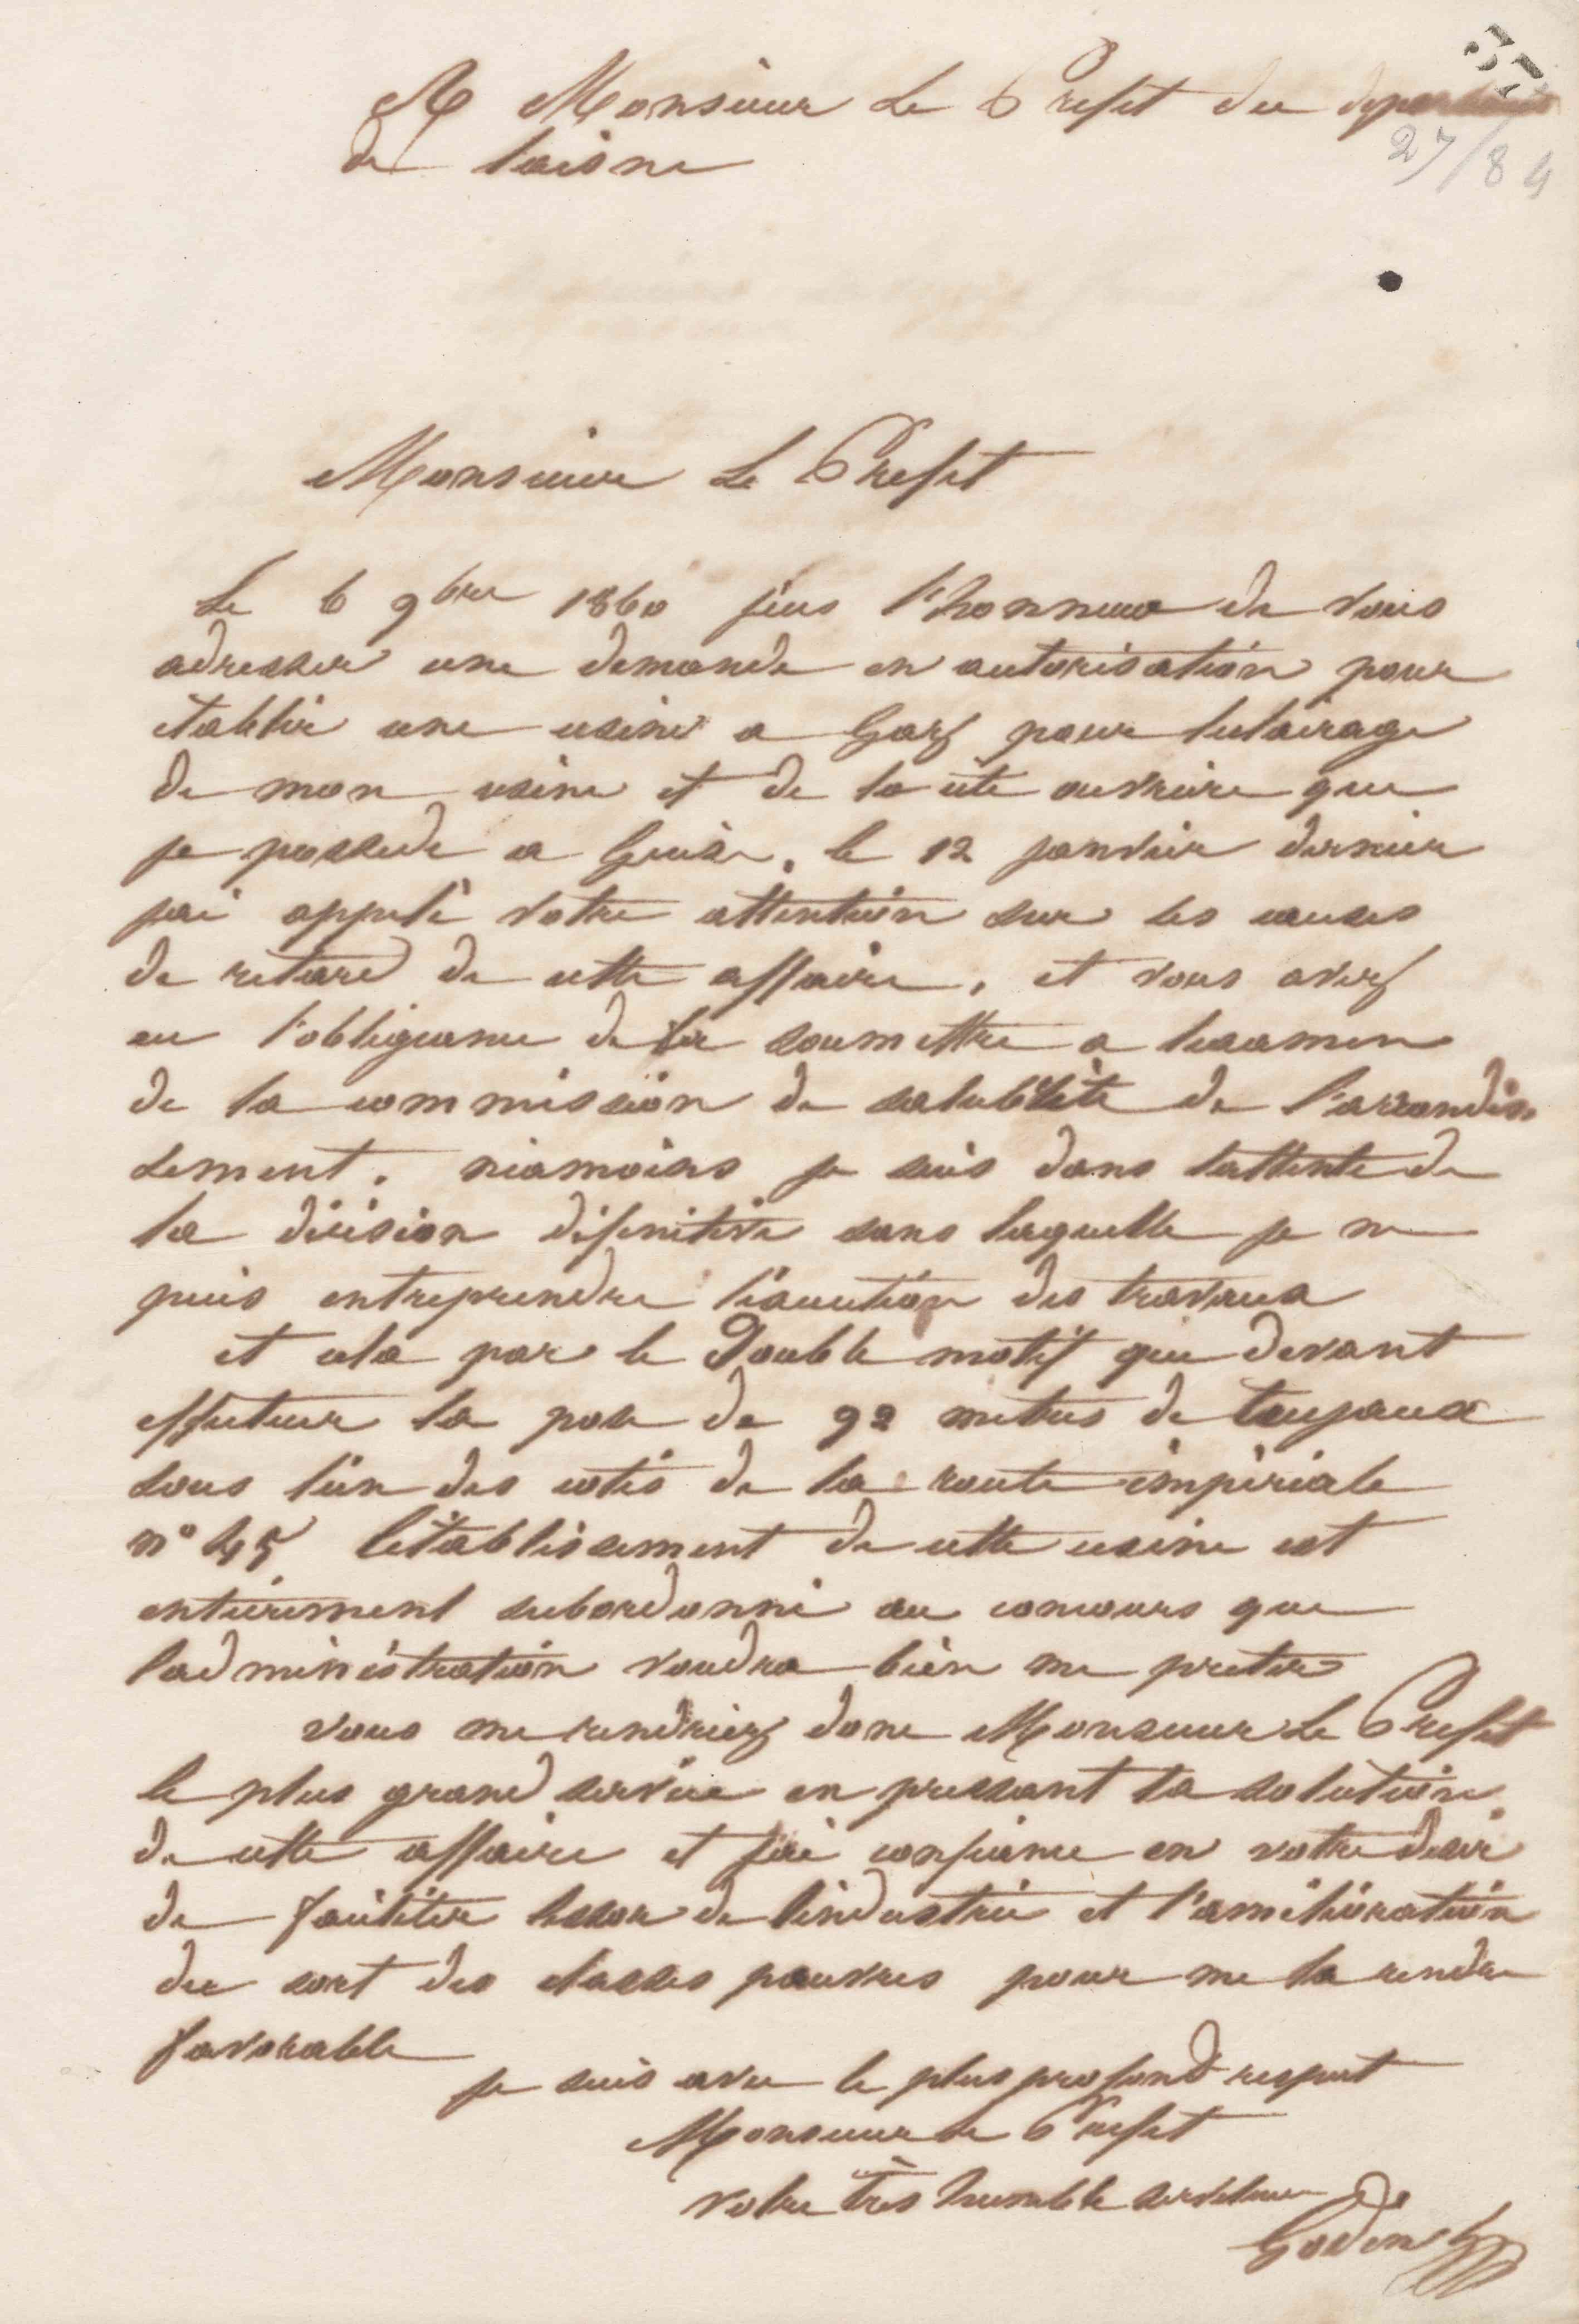 A Monsieur Le Prefet du departement
de laisne
27/84
Monsieur Le Prefet
Le 6 9bre 1860 jeus l'honneur de vous
adresser une demande en autorisation pour
établir une usine a Gaz pour leclairage
de mon usine et de la cité ouvriere que
je possede a Guise. le 12 janvier dernier
jai appelé votre attention sur les causes
de retard de cette affaire, et vous avez
eu l'obligeance de la soumettre a lexamen
de la commission de salubrité de l'arrondis
sement. néamoins je suis dans lattente de
la décision définitive sans laquelle je ne
puis entreprendre l'éxécution des travaux
et cela par le Double motif que devant
effectuer la pose de 92 metres de tuyaux
sous l'un des cotés de la route impériale
n° 45 létablissement de cette usine est
entièrement subordonné au concours que
ladministration voudra bien me preter
vous me rendriez donc Monsieur Le Prefet
le plus grand service en pressant la solution
de cette affaire et j'ai confiance en votre desir
de faciliter lessor de lindustrie et l'amélioration
du sort des classes pauvres pour me la rendre
favorable
je suis avec le plus profond respect
Monsieur le Prefet
votre très humble serviteur
Godin